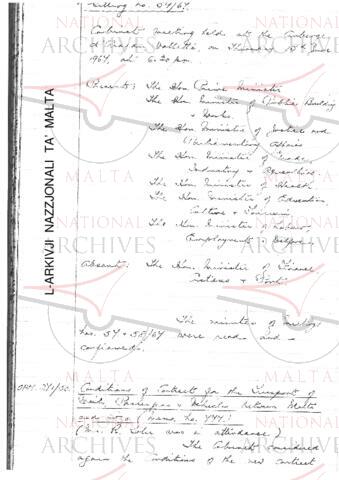 Cabinet meeting held at the Auberge
Valletta, on Thursday 15th June
1967, at 6.20 p.m.
Present: The Hon. Prime Minister
The Hon. Minister of Public Building
& Works.
The Hon. Minister of Justice and
Parliamentary Affairs
The Hon. Minister of Trade,
Industry & Agriculture.
The Hon. Minister of Health
The Hon. Minister of Education,
Culture & Tourism.
The Hon. Minister of Labour,
Employment & Welfare.
Absent: The Hon. Minister of Finance
Customs & Port.
The minutes of
nos. 57 + 58/67 were read and
confirmed.
Conditions of Contract for the Transport of
Mails, Passengers & Vehicles between Malta
and Gozo (Memo. No.
(Mr. R. was in attendance)
The Cabinet considered
again the conditions of the new contract
L-ARKIVJI NAZZJONALI TA' MALTA
NATIONAL
ARCHIVES
MALTA